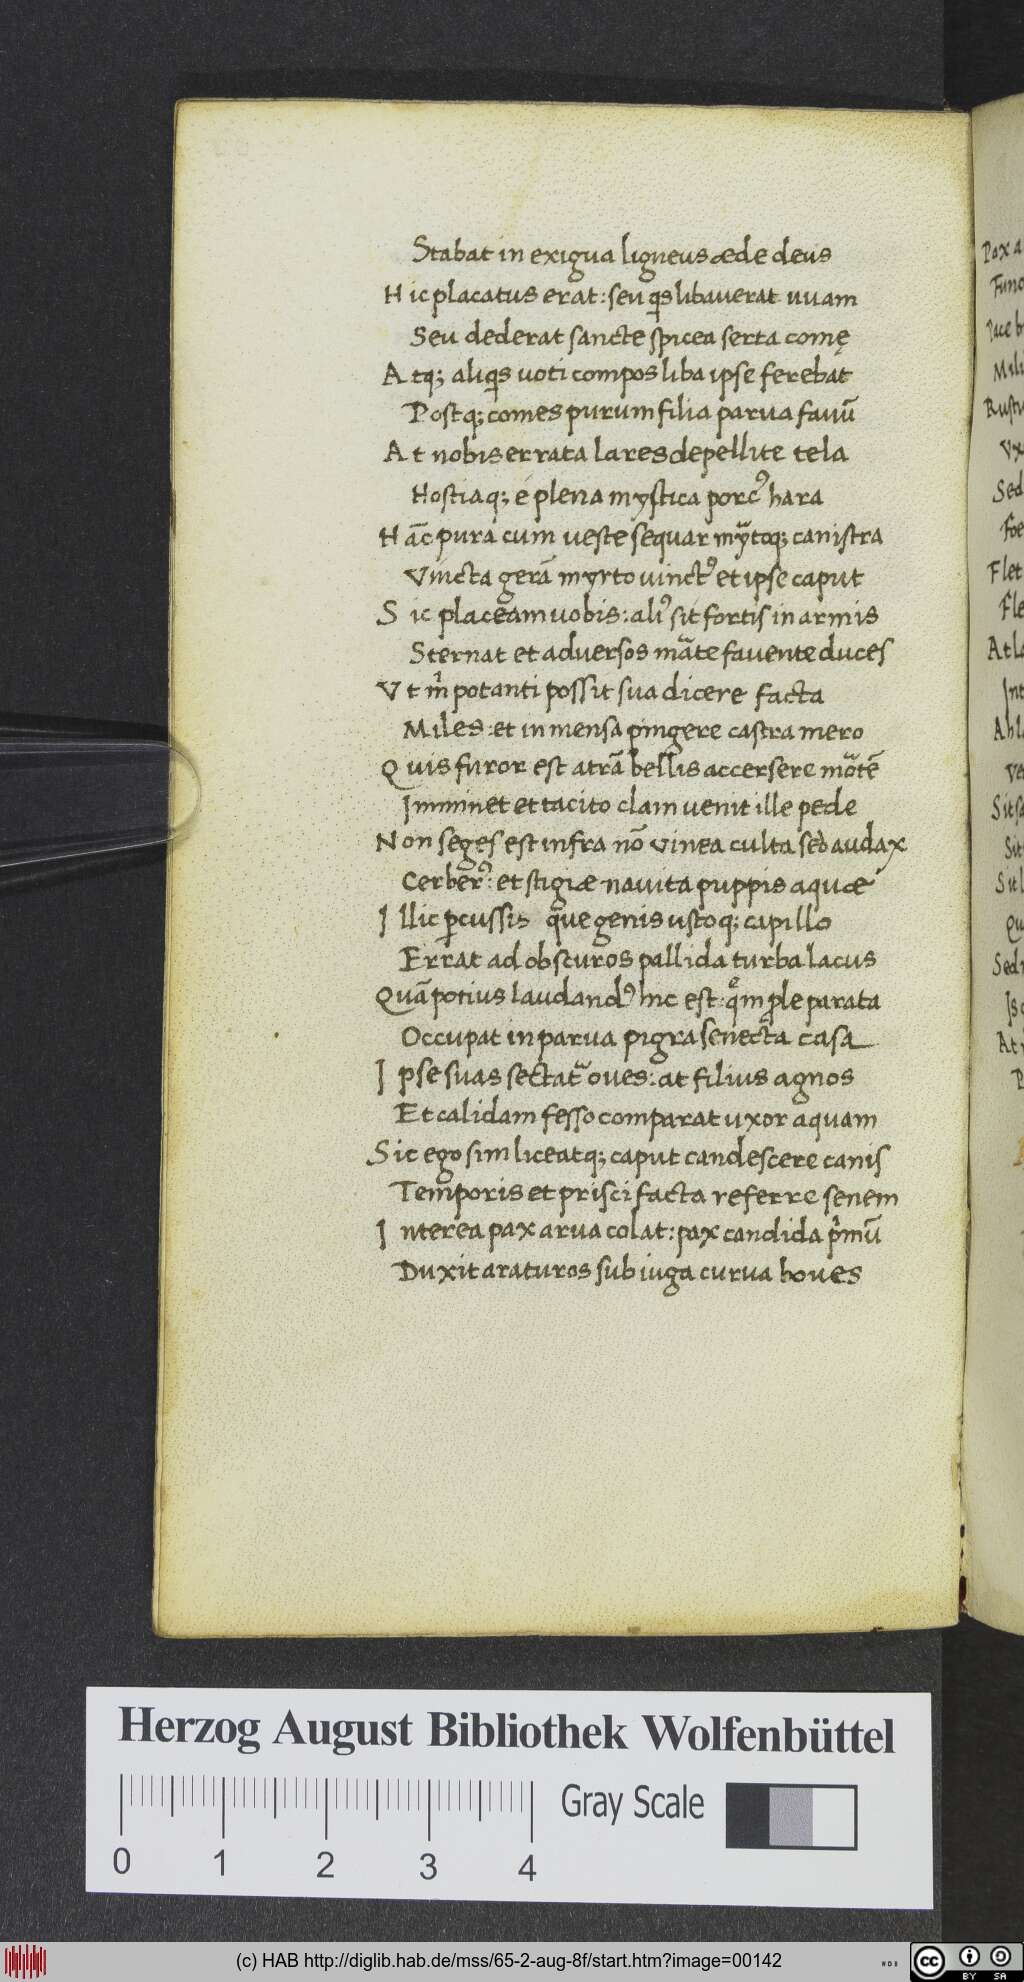 Stabat in exigua ligneus æde deus
Hic placatus erat: seu qͥs libauerat uuam
Seu dederat sancte spicea serta comę
Atq; aliqͥs uoti compos liba ipse ferebat
Postq; comes purum filia parua fauū
At nobis errata lares depellite tela
Hostiaq; é plena mystica porcꝰ hara
Hāc pura cum ueste sequar myͬtoq; canistra
Vincta gerā myrto uinctꝰ et ipse caput
Sic placeam uobis: aliꝰ sit fortis in armis
Sternat et aduersos maͬte fauente duces
Vt mͥ potanti possit sua dicere facta
Miles: et in mensa pingere castra mero
Quis furor est atrā bellis accersere moͬtē
Imminet et tacito clam uenit ille pede
Non seges est infra nō vinea culta sed audax
Cerberꝰ: et stigiæ nauita puppis aquæ
Illic ꝑcussis qͣue genis ustoq; capillo
Errat ad obscuros pallida turba lacus
Quā potius laudandꝰ hic est: quͤm ꝓle parata
Occupat in parua pigra senectͣa casa
Ipse suas sectatͬ oues: at filius agnos
Et calidam fesso comparat uxor aquam
Sic ego sim liceatq; caput candescere canis
Temporis et prisci facta referre senem
Interea pax arua colat: pax candida pͥmū
Duxit araturos sub iuga curua boues
Pax a
Func
Pace b
Mili
Rusti
Vx
Sed
Foe
Flet
Fle
At la
Int
Ah la
Sit sa
Sit
Sit l
Qu
Sed
Is
At
P
Herzog August Bibliothek Wolfenbüttel
Gray Scale
0 1 2 3 4
(c) HAB http://diglib.hab.de/mss/65-2-aug-8f/start.htm?image=00142
cc BY SA